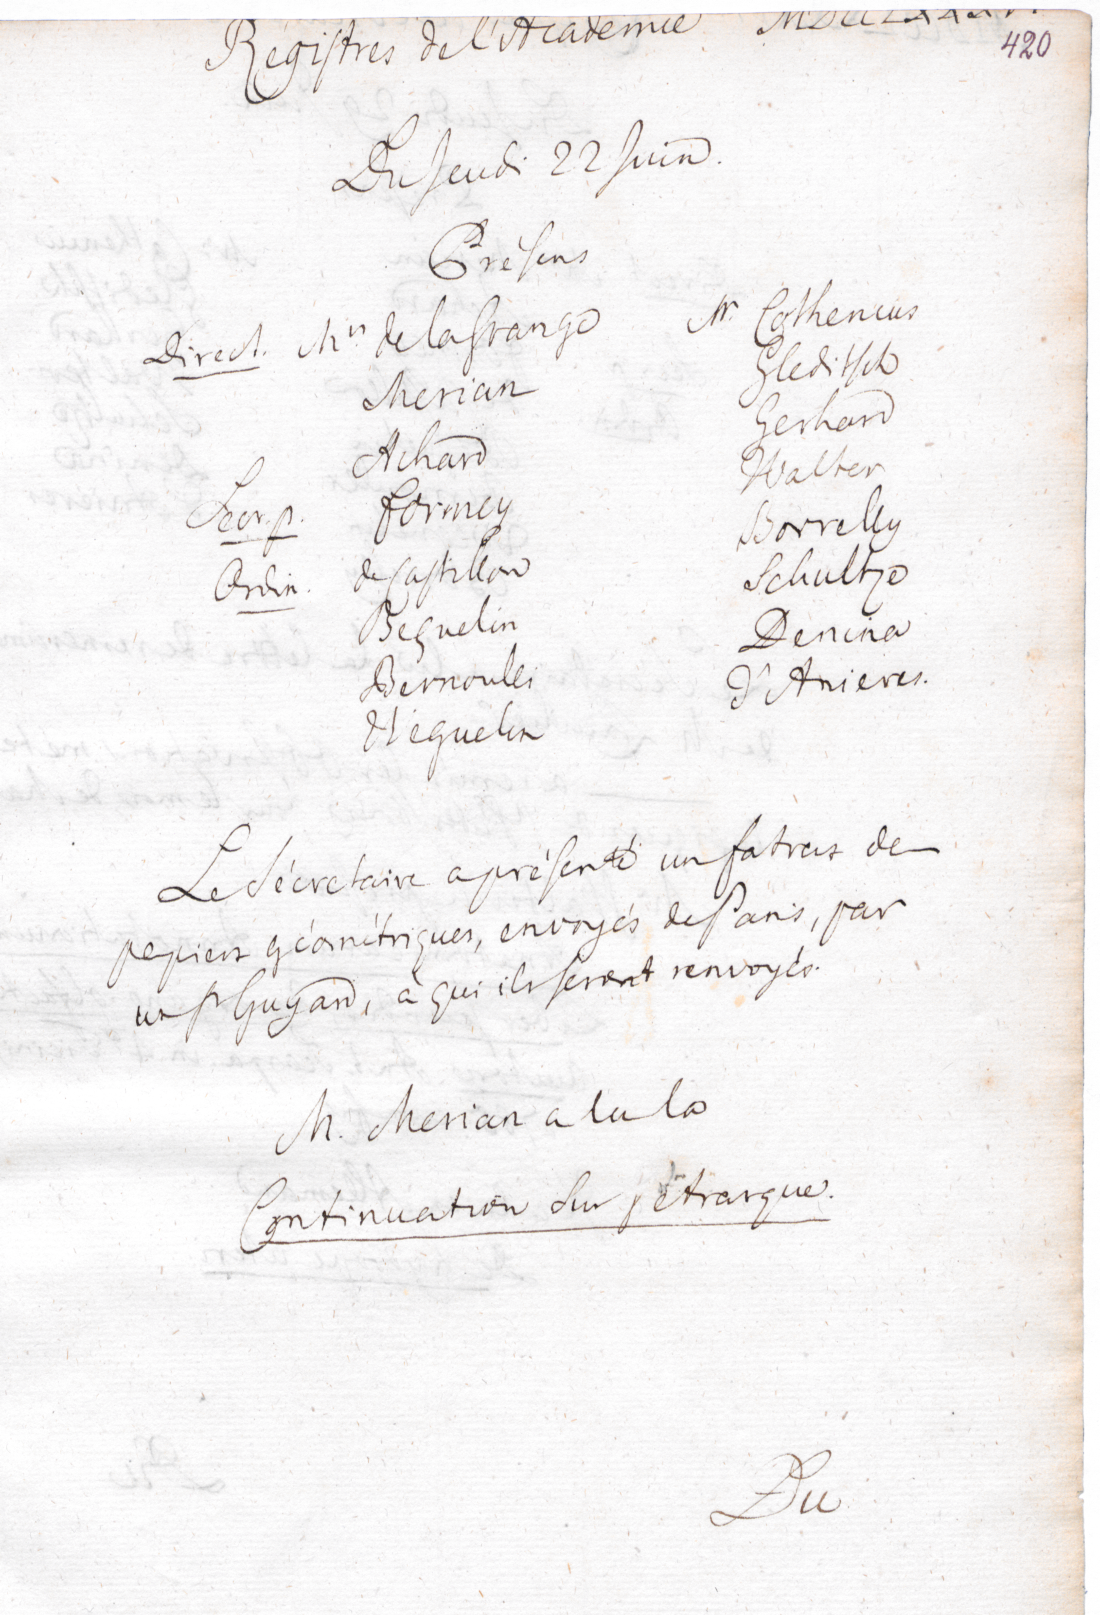 Régistres de l'Académie MDCCLXXXVI.
420
Du Jeudi 22 Juin.
Présens
Direct. Mrs. de la Grange
Merian
Achard
Secr. p. Formey
Ordin. de Castillon
Beguelin
Bernoulli
Weguelin
Mr. Cothenius
Gleditsch
Gerhard
Walter
Borrelly
Schultze
Denina
d'Anieres.
Le Sécretaire a présenté un fatras de
papiers géométriques, envoyés de Paris, par
un Sr Guyard, à qui ils seront renvoyés.
M. Merian a lu la
Continuation sur pétrarque.
Du